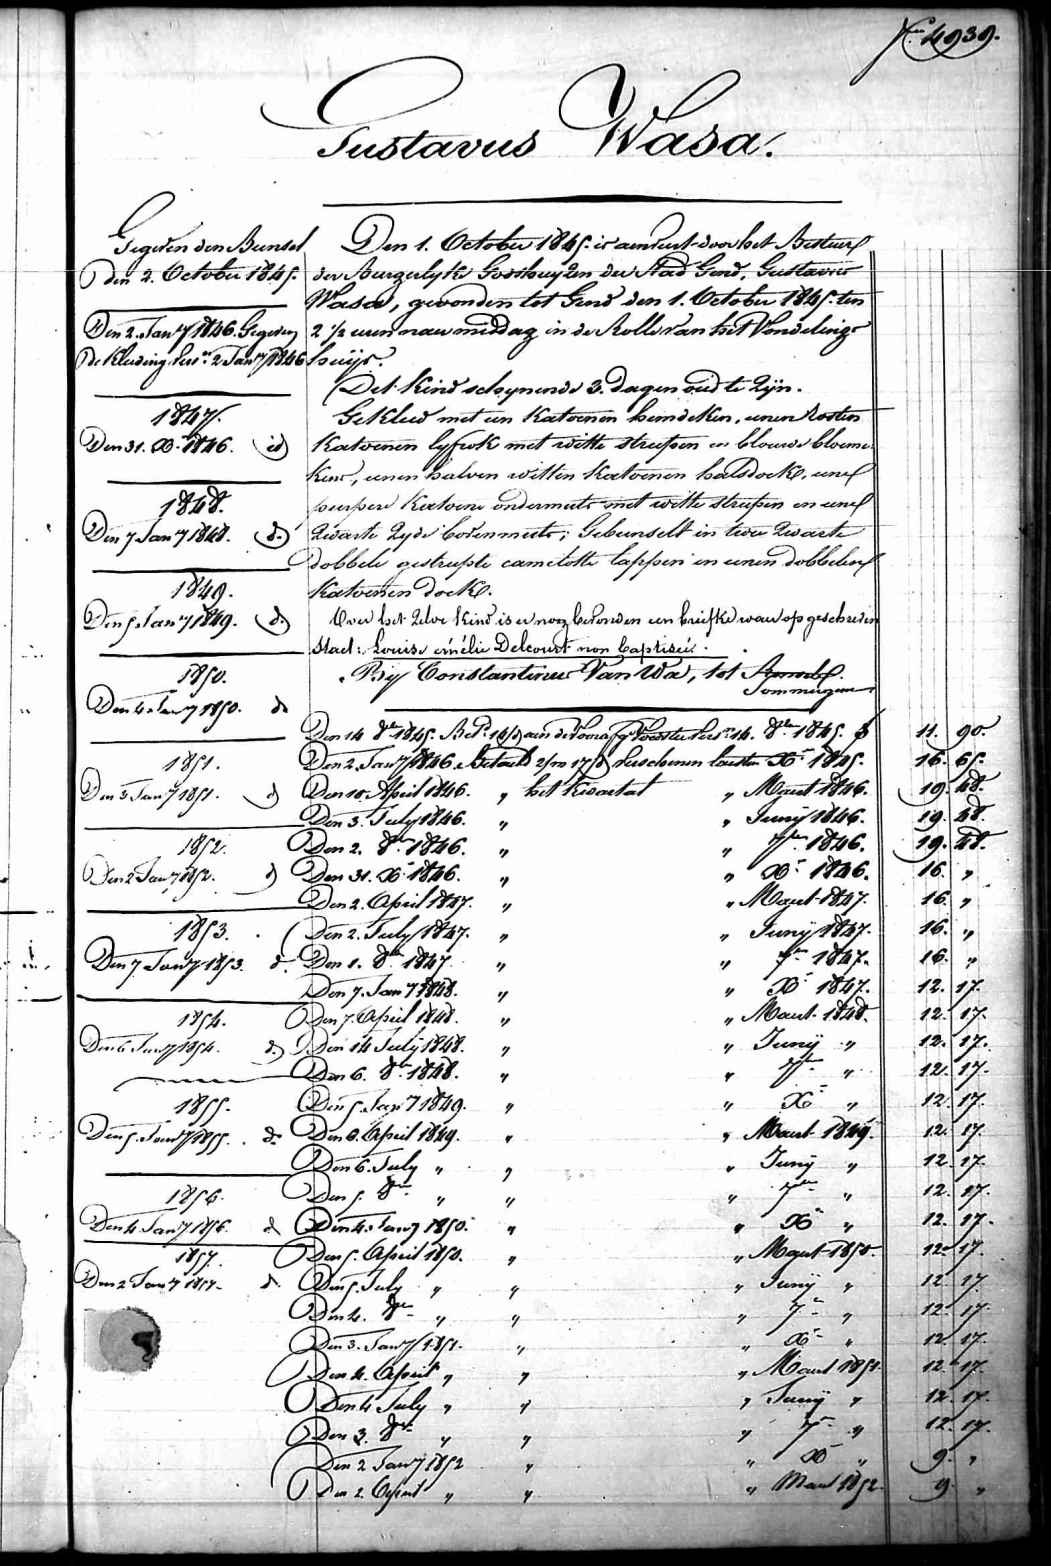 N.º 4939.
Gustavus Wasa.
Gegeven den Bunsel
den 2. October 1845.
Den 2. Jan.y 1846. Gegeven
de Kleeding 2 Jan.y 1846
1847.
Den 31. X.r 1846. id
1848.
Den 7 Jan.y 1848. d.o
1849.
Den 5. Jan.y 1849. d.o
1850.
Den 4. Jan.y 1850. d.o
1851.
Den 3 Jan.y 1851. d.o
1852.
Den 2 Jan.y 1852. d.o
1853.
Den 7. Jan.y 1853. d.o
1854.
Den 6 Jan.y 1854. d.o
1855.
Den 5. Jan.y 1855. d.o
1856.
Den 4 Jan.y 1856. d.o
1857.
Den 2 Jan.y 1857. d.o
Den 1. October 1845. is aenveert door het Bestuer
der Burgerlyke Godshuyzen der Stad Gend, Gustavus
Wasa, gevonden tot Gend den 1. October 1845. ten
2 1/2 uren naermiddag in de Rolle van het Vondelings-
huijs.
Det Kind schynende 3. dagen oud te zijn.
Gekleed met een katoenen hemdeken, eenen rosten
katoenen lyfrok met witte streepen en blouwe bloeme-
kens, eenen halven witten katoenen halsdoek, eene
purpere katoene ondermuts met witte streepen en eene
zwarte zyde bovenmuts; Gebunselt in twee zwarte
dobbele gestreepte camelotte lappen en eenen dobbelen
katoenen doek.
Over het zelve kind is er nog bevonden een briefke waer op geschreven
staet: Louise Amélie Delcourt non baptisée.
By Constantinus Van Wa, tot
Sommergem
Den 14 8.bre 1845. 14. 8.bre 1845. 11. 90.
Den 2. Jan.y 1846. X.r 1845. 16. 65.
Den 10. April 1846. " het kwartael " Maert 1846. 19. 48.
Den 3. July 1846. " " Junij 1846. 19. 48.
Den 2. 8.bre 1846. " " 7.bre 1846. 19. 48.
Den 31. X.r 1846. " " X.r 1846. 16. "
Den 2. April 1847. " " Maert 1847. 16. "
Den 2. July 1847. " " Junij 1847. 16. "
Den 1. 8.bre 1847. " " 7.bre 1847. 16. "
Den 7. Jan.y 1848. " " X.r 1847. 12. 17.
Den 7. April 1848. " " Maert 1848. 12. 17.
Den 14 July 1848. " " Junij " 12. 17.
Den 6. 8.bre 1848. " " 7.bre " 12. 17.
Den 5. Jan.y 1849. " " X.r " 12. 17.
Den 6. April 1849. " " Maert 1849. 12. 17.
Den 6. July " " " Junij " 12. 17.
Den 5. 8.bre " " " 7.bre " 12. 17.
Den 4. Jan.y 1850. " " X.r " 12. 17.
Den 5. April 1850. " " Maert 1850. 12. 17.
Den 5. July " " " Junij " 12. 17.
Den 4. 8.bre " " " 7.bre " 12. 17.
Den 3. Jan.y 1851. " " X.r " 12. 17.
Den 4. April " " " Maert 1851. 12. 17.
Den 4 July " " " Junij " 12. 17.
Den 3. 8.bre " " " 7.bre " 12. 17.
Den 2 Jan.y 1852 " " X.r " 9. "
Den 2 April " " " Maert 1852. 9. "